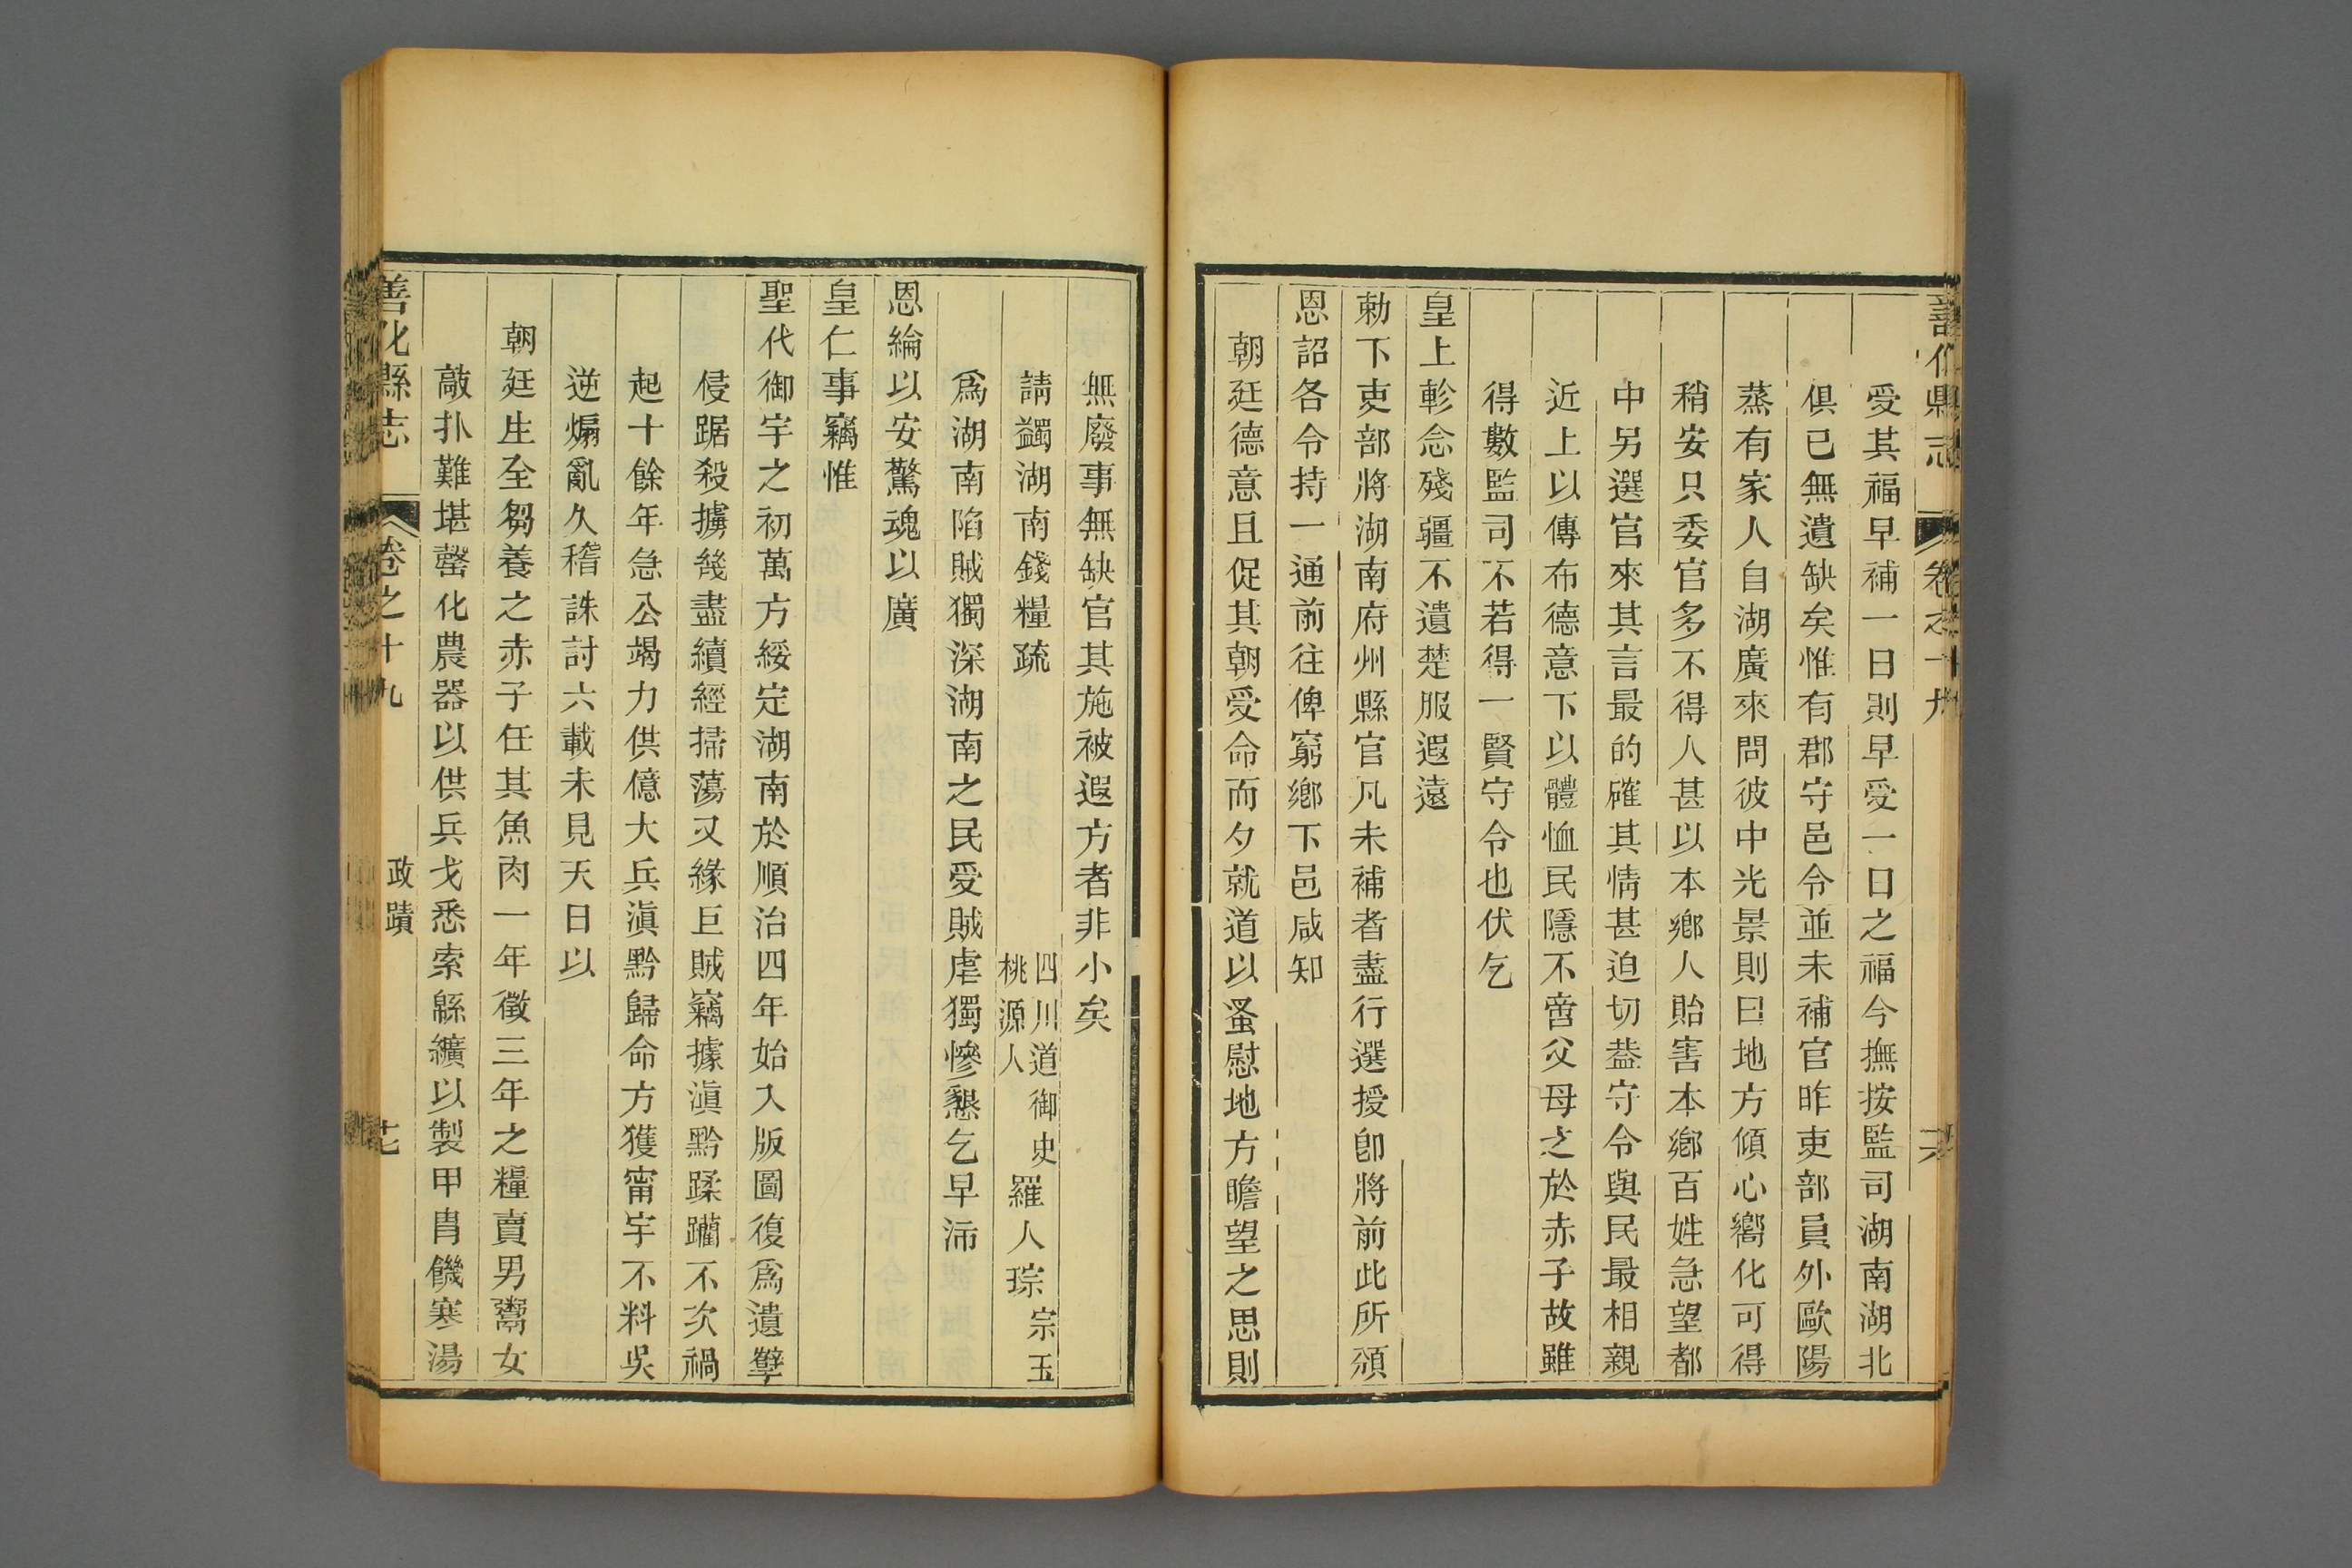 善化縣志 卷之十九 十六
受其福早補一日則早受一日之福今撫按監司湖南湖北
俱已無遺缺矣惟有郡守邑令並未補官昨吏部員外歐陽
蒸有家人自湖廣來問彼中光景則曰地方傾心嚮化可得
稍安只委官多不得人甚以本鄉人貽害本鄉百姓急望都
中另選官來其言最的確其情甚迫切葢守令與民最相親
近上以傳布德意下以體恤民隱不啻父母之於赤子故雖
得數監司不若得一賢守令也伏乞
皇上軫念殘疆不遺楚服遐遠
勅下吏部將湖南府州縣官凡未補者盡行選授卽將前此所頒
恩詔各令持一通前往俾窮鄉下邑咸知
朝廷德意且促其朝受命而夕就道以蚤慰地方瞻望之思則
無廢事無缺官其施被遐方者非小矣
請蠲湖南錢糧疏 四川道御史 桃源人 羅人琮 宗玉
爲湖南陷賊獨深湖南之民受賊虐獨慘懇乞早沛
恩綸以安驚魂以廣
皇仁事竊惟
聖代御宇之初萬方綏定湖南於順治四年始入版圖復爲遺孽
侵踞殺擄幾盡續經掃蕩又緣巨賊竊據滇黔蹂躪不次禍
起十餘年急公竭力供億大兵滇黔歸命方獲甯宇不料吳
逆煽亂久稽誅討六載未見天日以
朝廷生全芻養之赤子任其魚肉一年徵三年之糧賣男鬻女
敲扑難堪罄化農器以供兵戈悉索綿纊以製甲胄饑寒湯
善化縣志 卷之十九 政蹟 十七